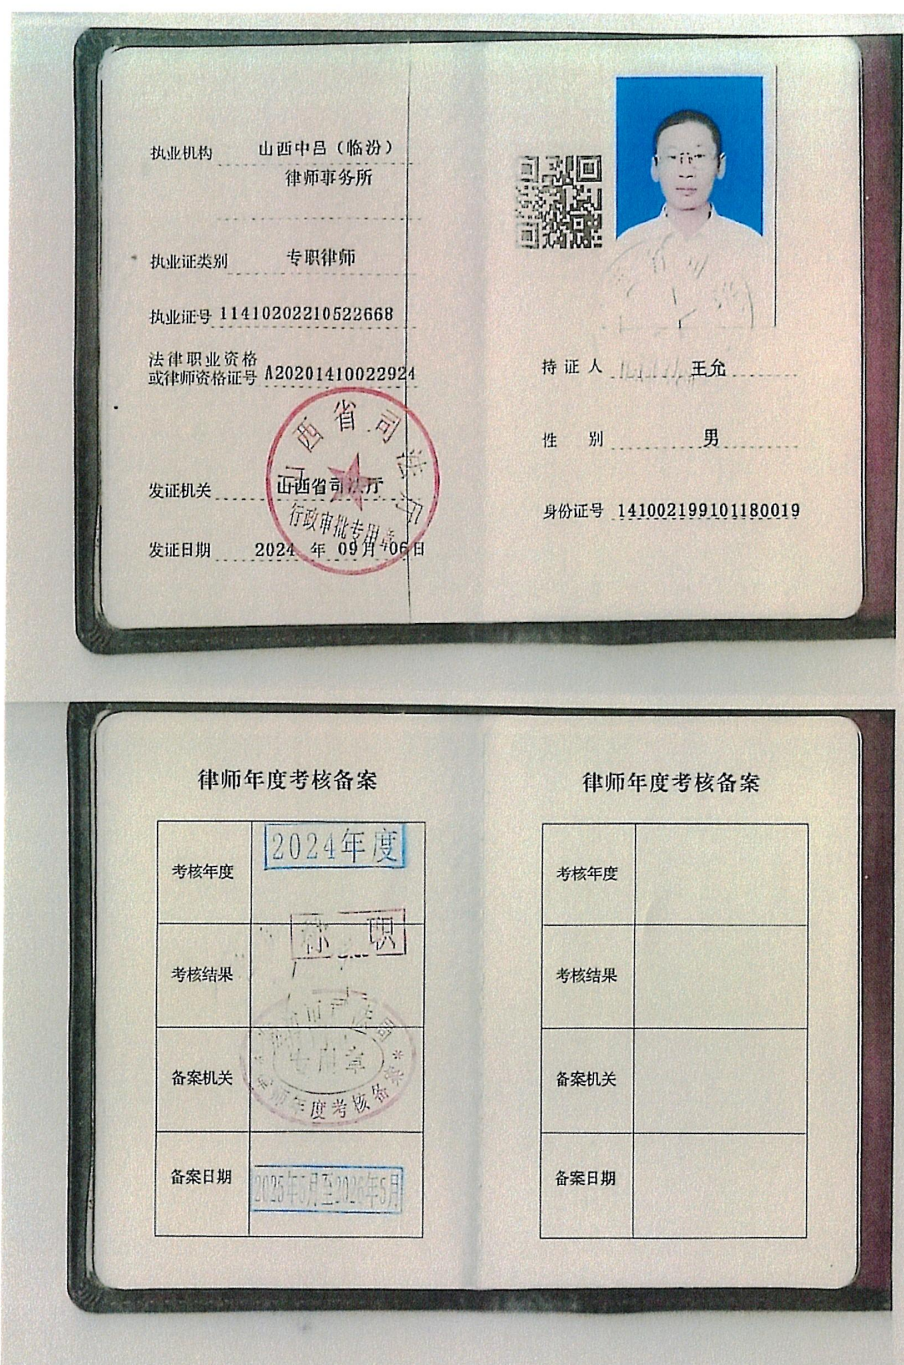 执业机构 山西中吕（临汾）
律师事务所
执业证类别 专职律师
执业证号 11410202210522668
法律职业资格
或律师资格证号 A20201410022924
发证机关 山西省司法厅
发证日期 2024 年 09月 06日
山西省司法厅
行政审批专用章
持证人 王允
性 别 男
身份证号 141002199101180019
律师年度考核备案
考核年度 2024年度
考核结果 称 职
备案机关
专用章
律师年度考核备案
备案日期 2025年5月至2026年5月
律师年度考核备案
考核年度
考核结果
备案机关
备案日期